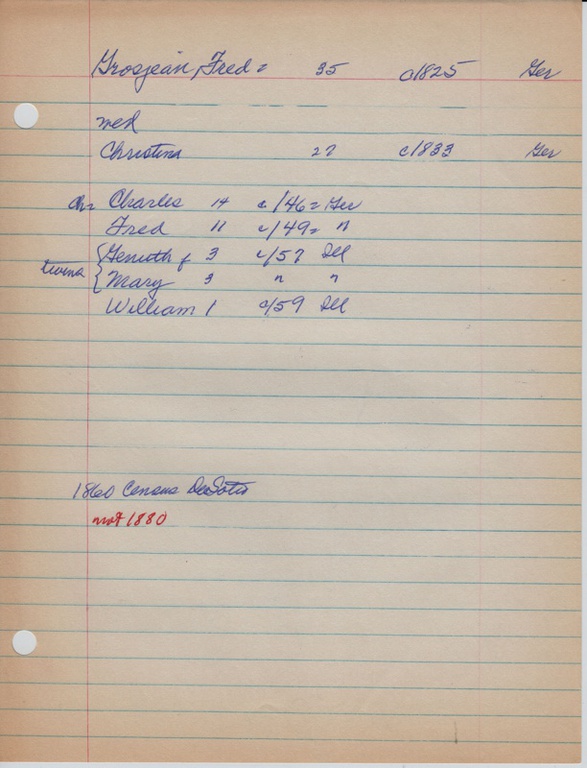 Grosjean, Fred = 35 c1825 Ger
med
Christina 27 c1833 Ger
ch= Charles 14 c/46= Ger
Fred 11 c/49= "
twins { f 3 c/57 Ill
{ Mary 3 " "
William 1 c/59 Ill
1860 Census DeSoto
not 1880